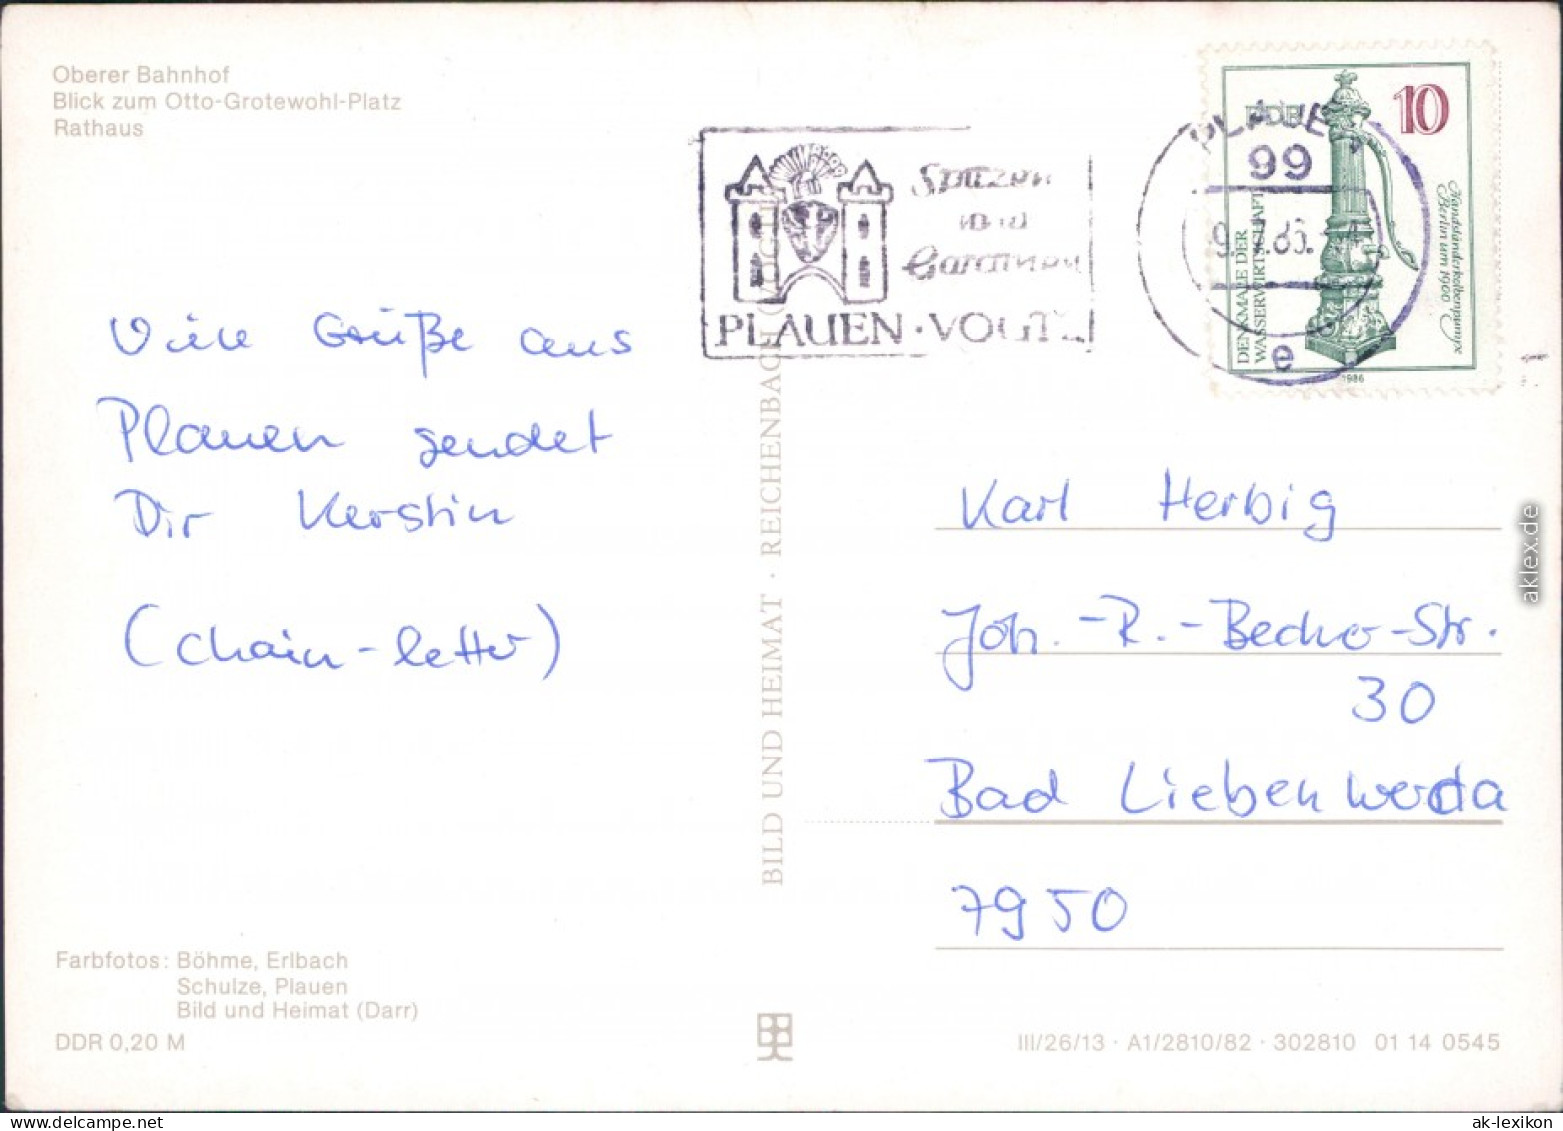 Oberer Bahnhof
Blick zum Otto-Grotewohl-Platz
Rathaus
Spitzen
und
Gardinen
PLAUEN · VOGTL
PLAUEN
99
9.7.86
e
DDR
10
DENKMALE DER
WASSERWIRTSCHAFT
Handständerkolbenpumpe
Berlin um 1900
1986
Viele Grüße aus
Plauen sendet
Dir Kerstin
(chain-letter)
BILD UND HEIMAT · REICHENBACH (VOGTL)
Karl Herbig
Joh.-R.-Becher-Str.
30
Bad Liebenwerda
7950
Farbfotos: Böhme, Erlbach
Schulze, Plauen
Bild und Heimat (Darr)
DDR 0,20 M
III/26/13 · A1/2810/82 · 302810 01 14 0545
aklex.de
ak-lexikon